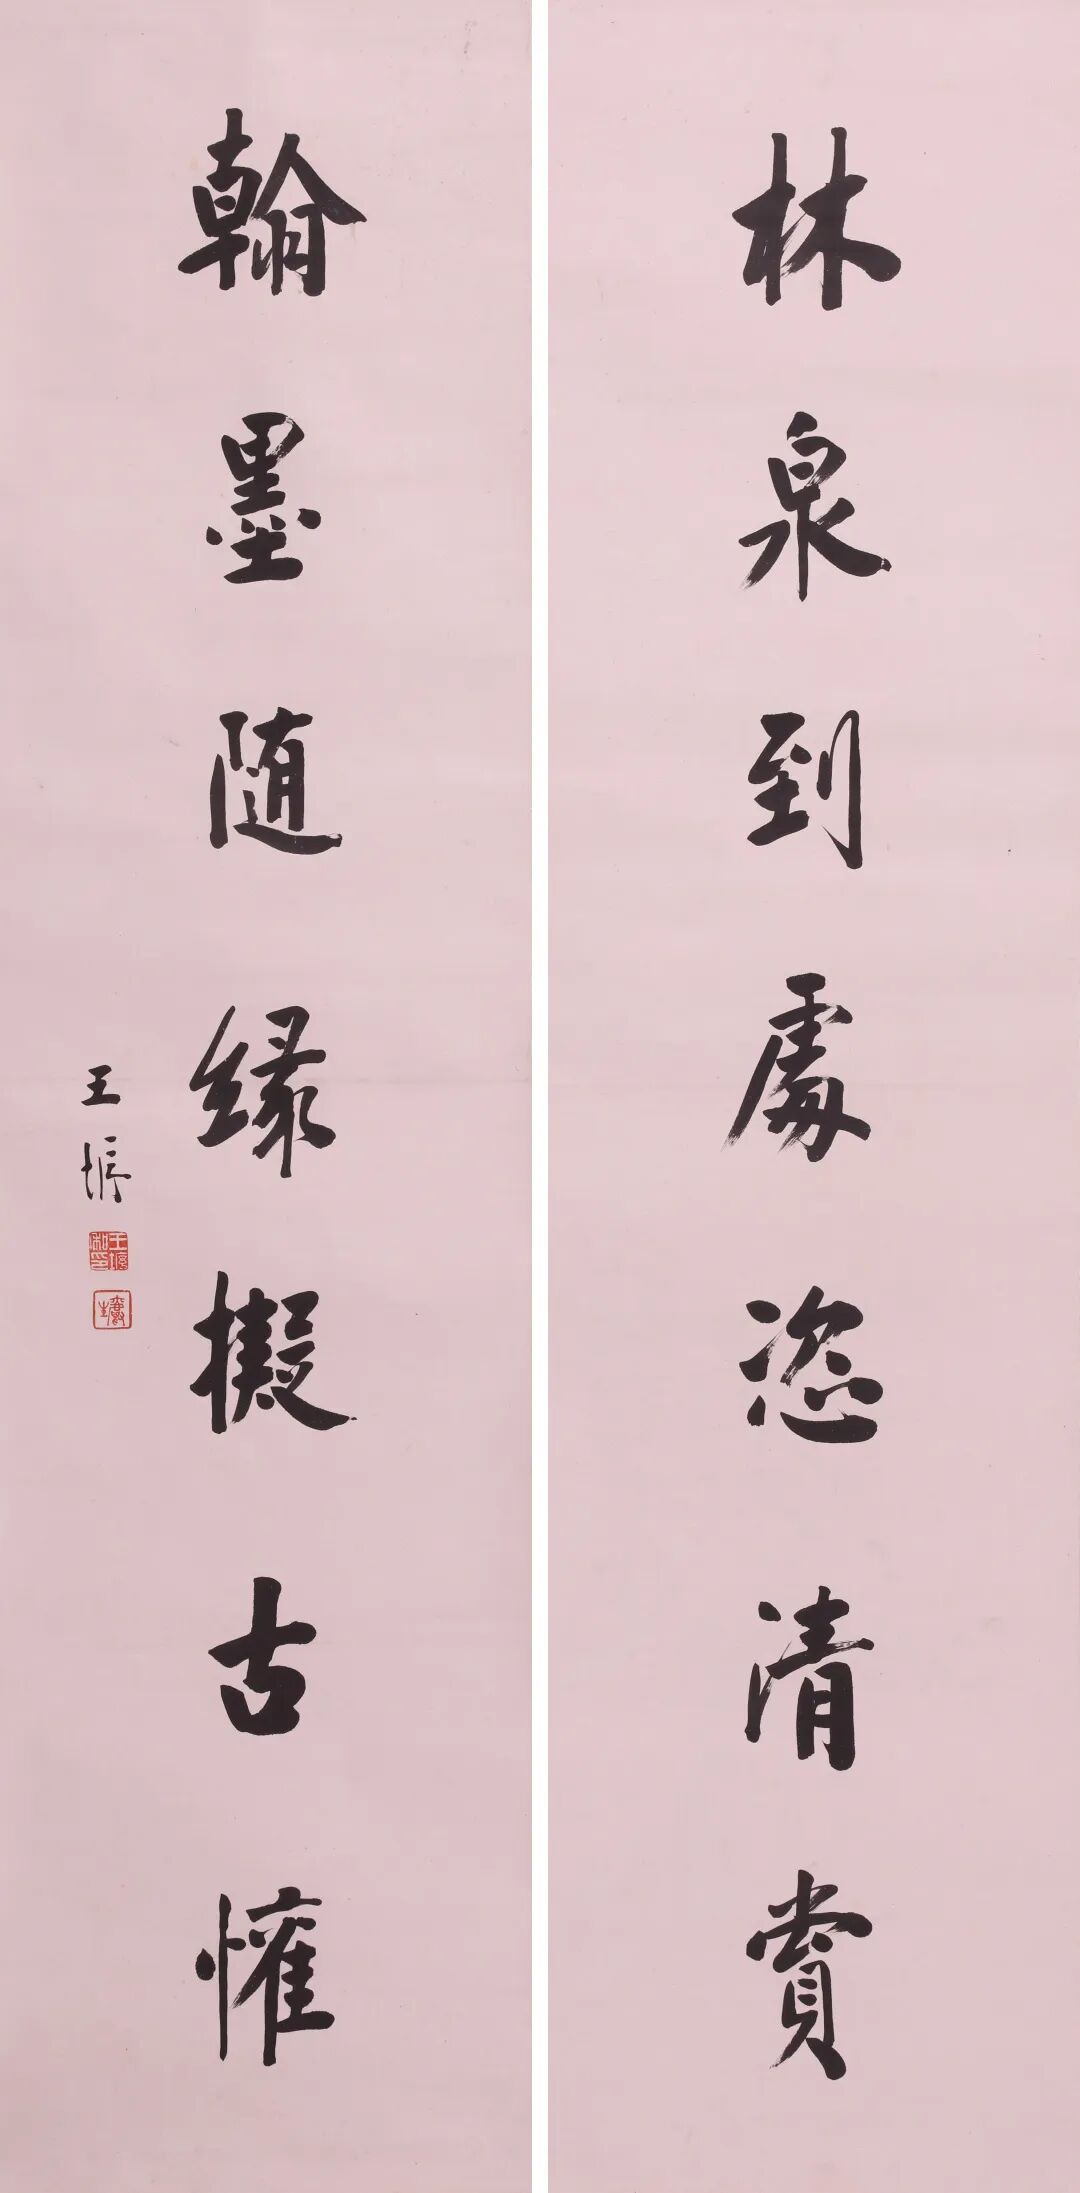 林泉到處恣清賞
翰墨随緣擬古懽
王垿
王垿私印
爵生